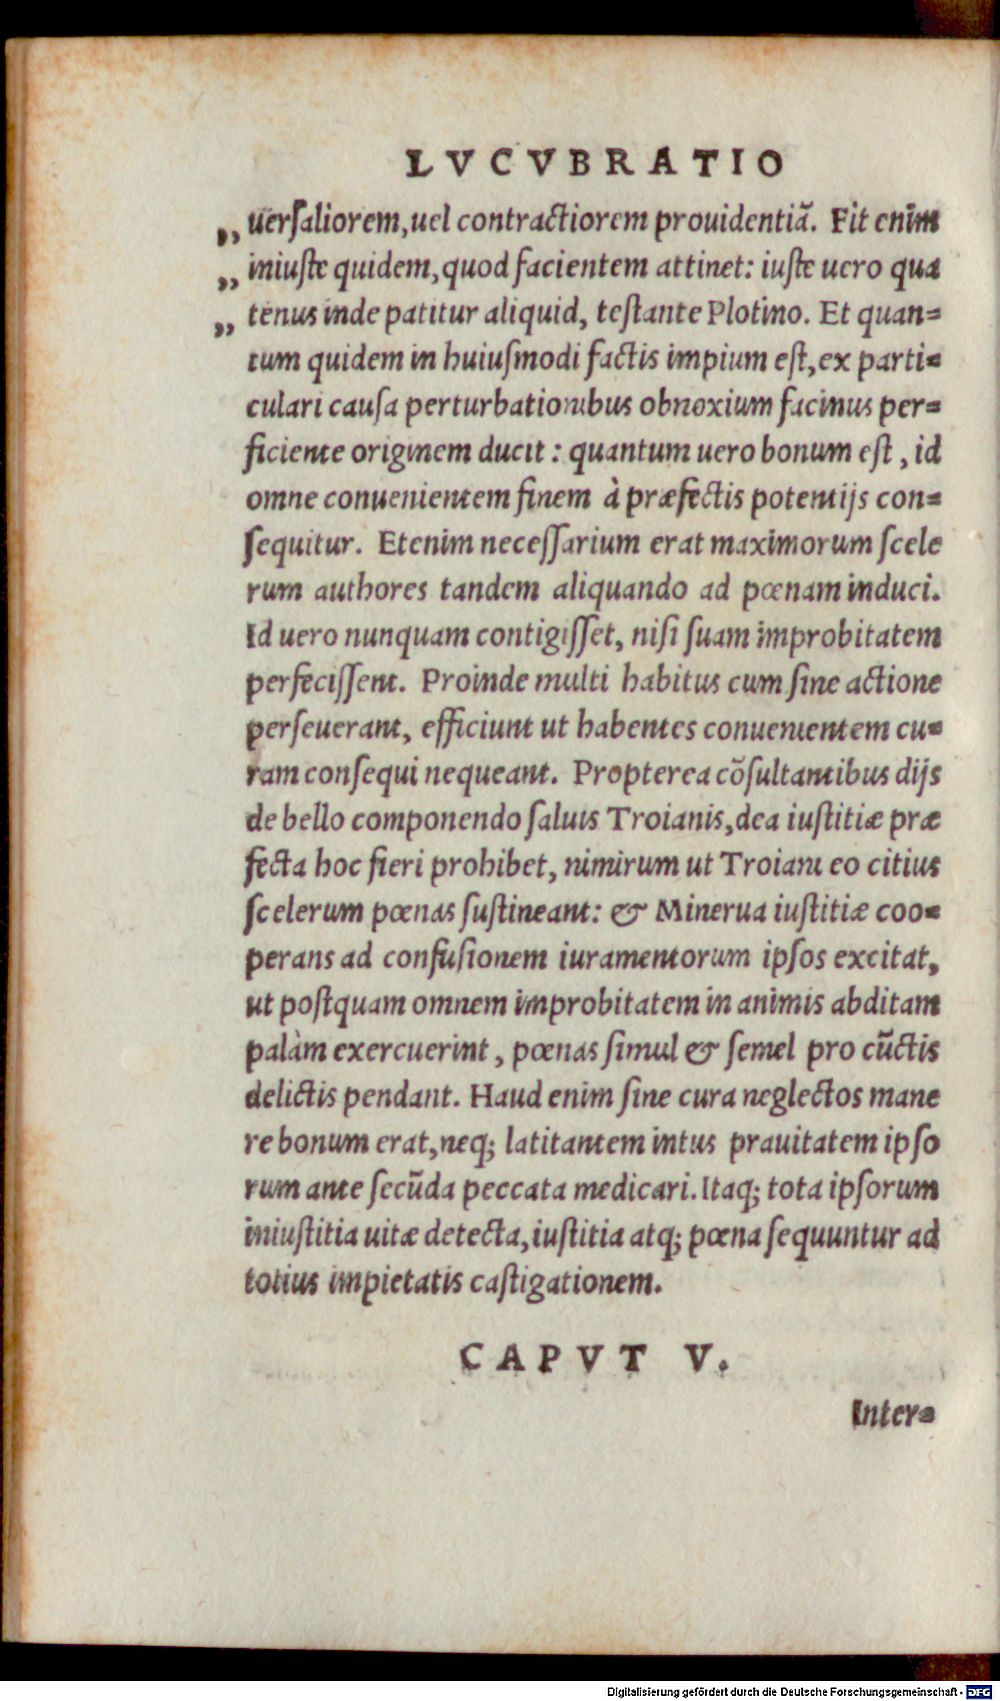 LVCVBRATIO
„ uerſaliorem, uel contractiorem prouidentiã. Fit enĩm
„ iniuſte quidem, quod facientem attinet: iuſte uero qua
„ tenus inde patitur aliquid, teſtante Plotino. Et quan=
tum quidem in huiuſmodi factis impium eſt, ex parti=
culari cauſa perturbationibus obnoxium facinus per=
ficiente originem ducit: quantum uero bonum eſt, id
omne conuenientem finem à præfectis potentijs con=
ſequitur. Etenim neceſſarium erat maximorum ſcele
rum authores tandem aliquando ad pœnam induci.
Id uero nunquam contigiſſet, niſi ſuam improbitatem
perfeciſſent. Proinde multi habitus cum ſine actione
perſeuerant, efficiunt ut habentes conuenientem cu=
ram conſequi nequeant. Propterea cõſultantibus dijs
de bello componendo ſaluis Troianis, dea iuſtitiæ præ
fecta hoc fieri prohibet, nimirum ut Troiani eo citius
ſcelerum pœnas ſuſtineant: & Minerua iuſtitiæ coo=
perans ad confuſionem iuramentorum ipſos excitat,
ut poſtquam omnem improbitatem in animis abditam
palàm exercuerint, pœnas ſimul & ſemel pro cũctis
delictis pendant. Haud enim ſine cura neglectos mane
re bonum erat, neq; latitantem intus prauitatem ipſo
rum ante ſecũda peccata medicari. Itaq; tota ipſorum
iniuſtitia uitæ detecta, iuſtitia atq; pœna ſequuntur ad
totius impietatis caſtigationem.
CAPVT V.
Inter=
Digitalisierung gefördert durch die Deutsche Forschungsgemeinschaft - DFG